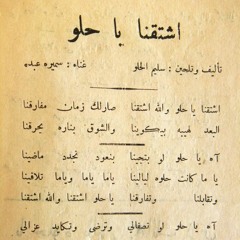 اشتقنا يا حلو
تأليف وتلحين : سليم الحلو    غناء : سميره عبده
اشتقنا يا حلو والله اشتقنا    صارلك زمان مفارقنا
البعد لهيبه بيكوينا    والشوق بناره يحرقنا
آه يا حلو لو بتجينا    بنعود نجدد ماضينا
يا ما كانت حلوه ليالينا    ياما ياما وياما تلاقينا
وتقابلنا وتفارقنا    يا حلو اشتقنا والله اشتقنا
آه يا حلو لو تصفالي    وترضى وتكايد عزالي